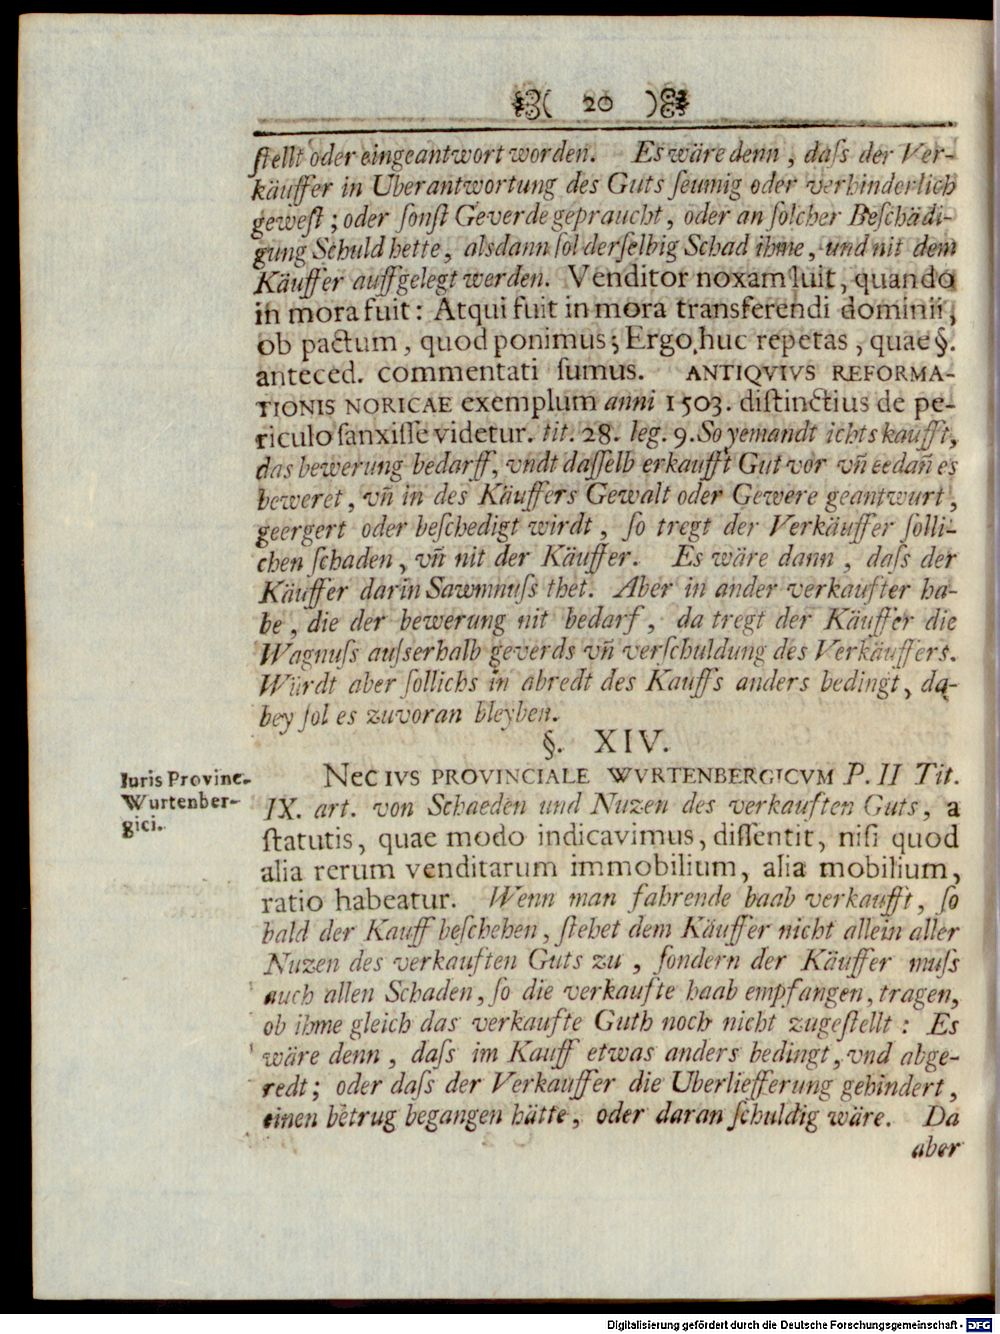 ( 20 )
ſtellt oder eingeantwort worden. Es wäre denn, daſs der Ver-
käuffer in Uberantwortung des Guts ſeumig oder verhinderlich
geweſt; oder ſonſt Geverde gepraucht, oder an ſolcher Beſchädi-
gung Schuld hette, alsdann ſol derſelbig Schad ihme, und nit dem
Käuffer auffgelegt werden. Venditor noxam luit, quando
in mora fuit: Atqui fuit in mora transferendi dominii,
ob pactum, quod ponimus; Ergo huc repetas, quae §.
anteced. commentati ſumus. ANTIQVIVS REFORMA-
TIONIS NORICAE exemplum anni 1503. diſtinctius de pe-
riculo ſanxiſſe videtur. tit. 28. leg. 9. So yemandt ichts kaufft,
das bewerung bedarff, vndt daſſelb erkaufft Gut vor vn̄ eedan̄ es
beweret, vn̄ in des Käuffers Gewalt oder Gewere geantwurt,
geergert oder beſchedigt wirdt, ſo tregt der Verkäuffer ſolli-
chen ſchaden, vn̄ nit der Käuffer. Es wäre dann, daſs der
Käuffer darin Sawmnuſs thet. Aber in ander verkaufter ha-
be, die der bewerung nit bedarf, da tregt der Käuffer die
Wagnuſs auſserhalb geverds vn̄ verſchuldung des Verkäuffers.
Würdt aber ſollichs in abredt des Kauffs anders bedingt, da-
bey ſol es zuvoran bleyben.
§. XIV.
Iuris Provinc.
Wurtenber-
gici.
NEC IVS PROVINCIALE WVRTENBERGICVM P. II Tit.
IX. art. von Schaeden und Nuzen des verkauften Guts, a
ſtatutis, quae modo indicavimus, diſſentit, niſi quod
alia rerum venditarum immobilium, alia mobilium,
ratio habeatur. Wenn man fahrende haab verkaufft, ſo
bald der Kauff beſchehen, ſtehet dem Käuffer nicht allein aller
Nuzen des verkauften Guts zu, ſondern der Käuffer muſs
auch allen Schaden, ſo die verkaufte haab empfangen, tragen,
ob ihme gleich das verkaufte Guth noch nicht zugeſtellt: Es
wäre denn, daſs im Kauff etwas anders bedingt, vnd abge-
redt; oder daſs der Verkauffer die Uberliefferung gehindert,
einen betrug begangen hätte, oder daran ſchuldig wäre. Da
aber
Digitalisierung gefördert durch die Deutsche Forschungsgemeinschaft - DFG